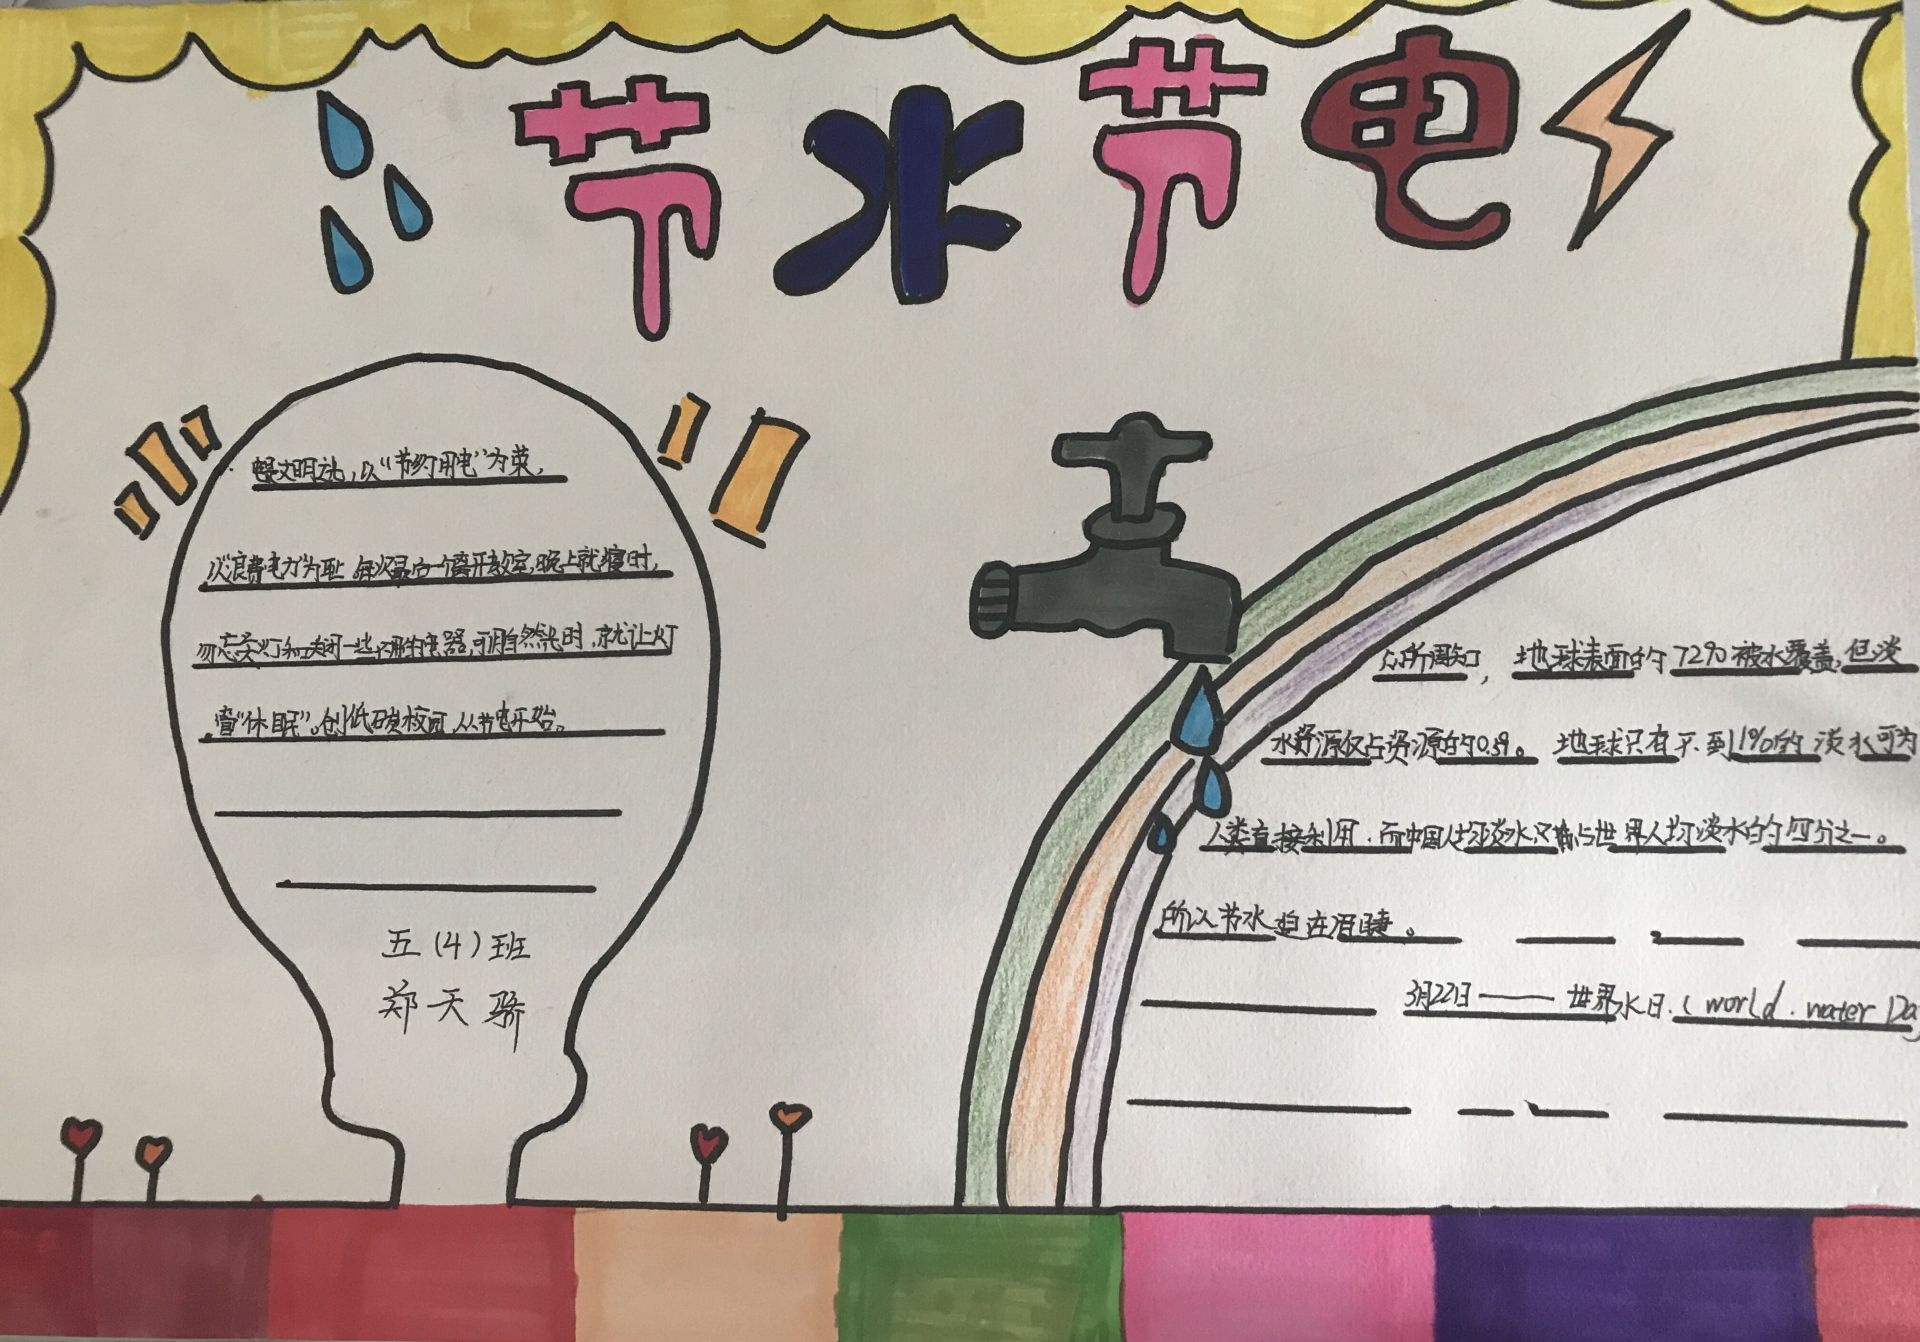 节水节电
文明动,以“节约用电”为荣,
以“浪费电力”为耻 每次最后一个离开教室,晚上就寝时,
勿忘关灯和关闭一些不用的电器,可用自然光时,就让灯
管“休眠”。创低碳校园,从节电开始。
五(4)班
郑天骄
众所周知, 地球表面的72%被水覆盖,但淡
水资源仅占资源的0.5%。 地球只有不到1%的淡水可为
人类直接利用,而中国人均淡水只占世界人均淡水的四分之一。
所以节水迫在眉睫。
3月22日——世界水日.(world.water Da